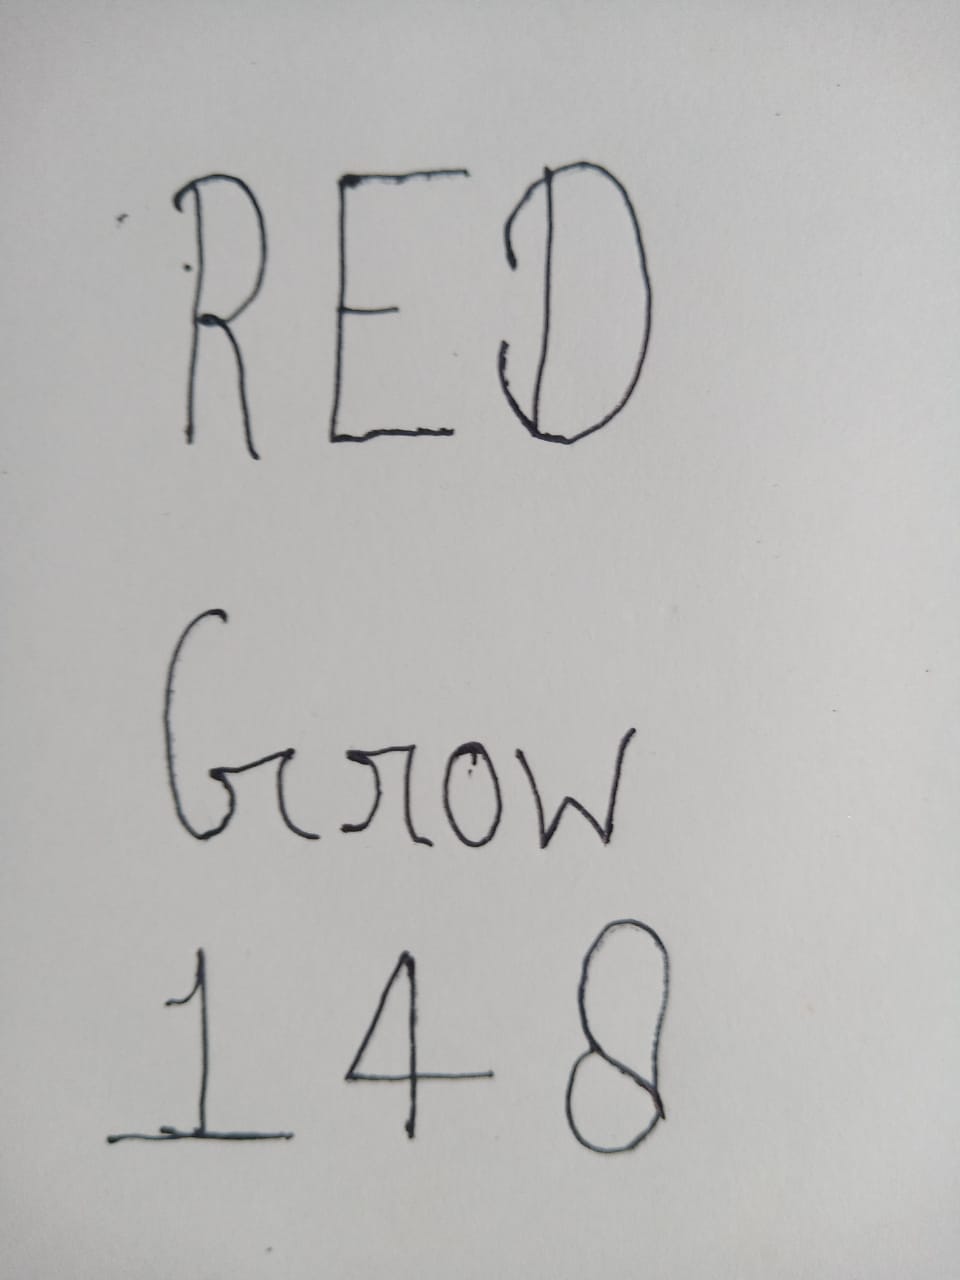 RED
Grow
148